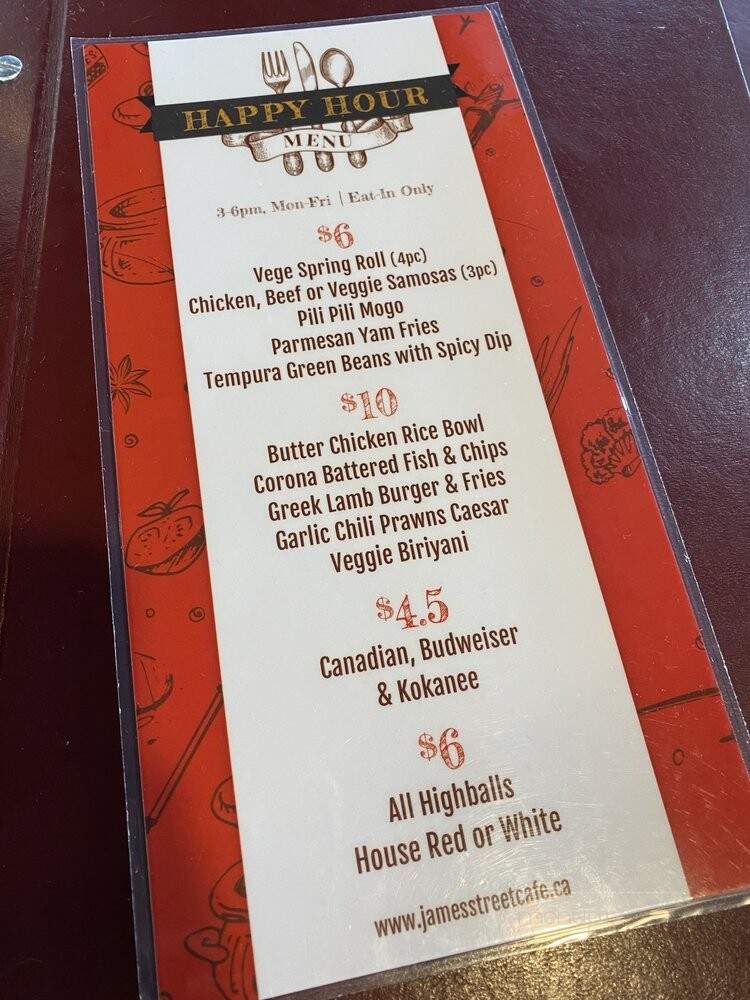 HAPPY HOUR
MENU
3-6pm, Mon-Fri | Eat-In Only
$6
Vege Spring Roll (4pc)
Chicken, Beef or Veggie Samosas (3pc)
Pili Pili Mogo
Parmesan Yam Fries
Tempura Green Beans with Spicy Dip
$10
Butter Chicken Rice Bowl
Corona Battered Fish & Chips
Greek Lamb Burger & Fries
Garlic Chili Prawns Caesar
Veggie Biriyani
$4.5
Canadian, Budweiser
& Kokanee
$6
All Highballs
House Red or White
www.jamesstreetcafe.ca